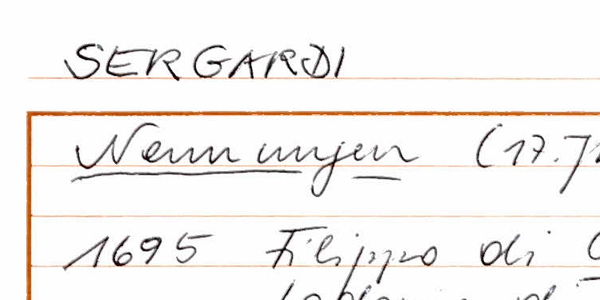 SERGARDI
Nennungen (17.
1695 Filippo di